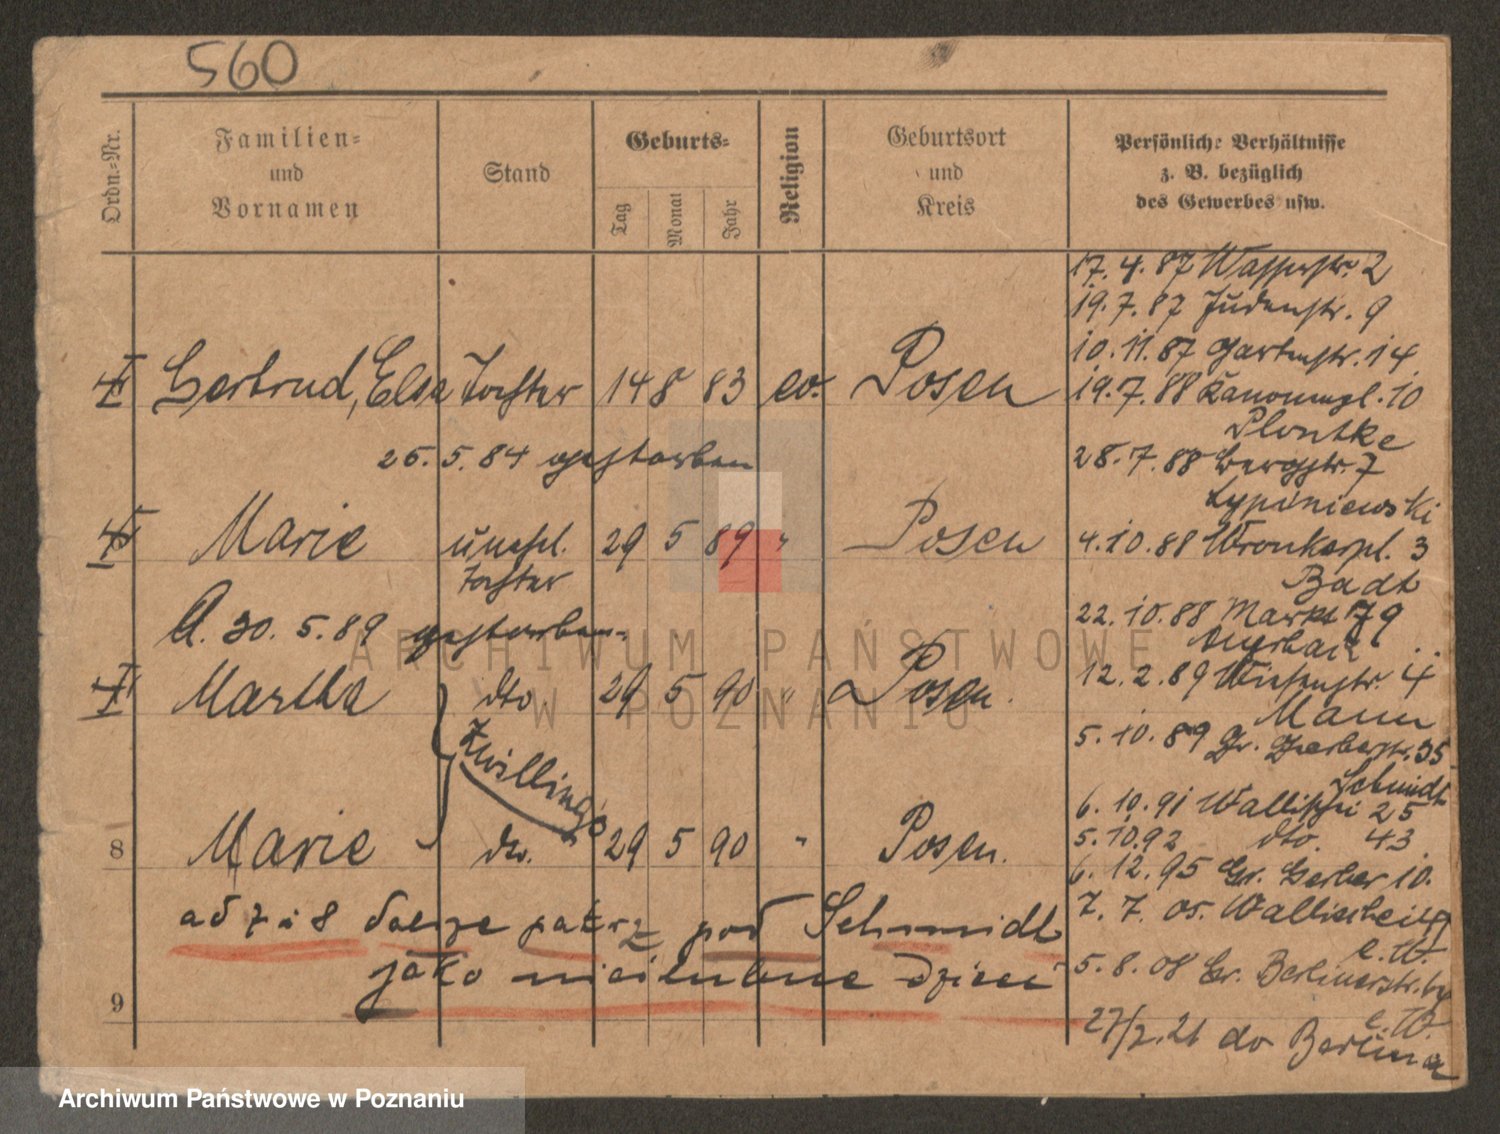 560
Ordn.-Nr.
Familien-
und
Vornamen
Stand
Geburts-
Tag
Monat
Jahr
Religion
Geburtsort
und
Kreis
Persönliche Verhältnisse
z. B. bezüglich
des Gewerbes usw.
Gertrud, Elsa Tochter 14 8 83 ev. Posen
25. 5. 84 gestorben
Marie unehl. 29 5 89 " Posen
Tochter
A. 30. 5. 89 gestorben
Martha dto 29 5 90 " Posen.
Zwillinge
8 Marie dto. 29 5 90 " Posen.
ad 7 i 8 dalsze patrz pod Schmidt
jako nieślubne dzieci
9
17. 4. 87 Wasserstr. 2
19. 7. 87 Judenstr. 9
10. 11. 87 Gartenstr. 14
19. 7. 88 Kanonenpl. 10
Plontke
28. 7. 88 Bergstr. 7
Lypiniewski
4. 10. 88 Wronkerpl. 3
Badt
22. 10. 88 Markt 79
Auerbach
12. 2. 89 Wiesenstr. 4
Mann
5. 10. 89 Gr. Gerberstr. 35
Schmidt
6. 10. 91 Wallischei 25
5. 10. 92 dto. 43
6. 12. 95 Gr. Gerber 10.
7. 7. 05. Wallischei
e. W.
5. 8. 08 Gr. Berlinerstr.
e. W.
27/7. 21 do Berlina
ARCHIWUM PAŃSTWOWE
W POZNANIU
Archiwum Państwowe w Poznaniu